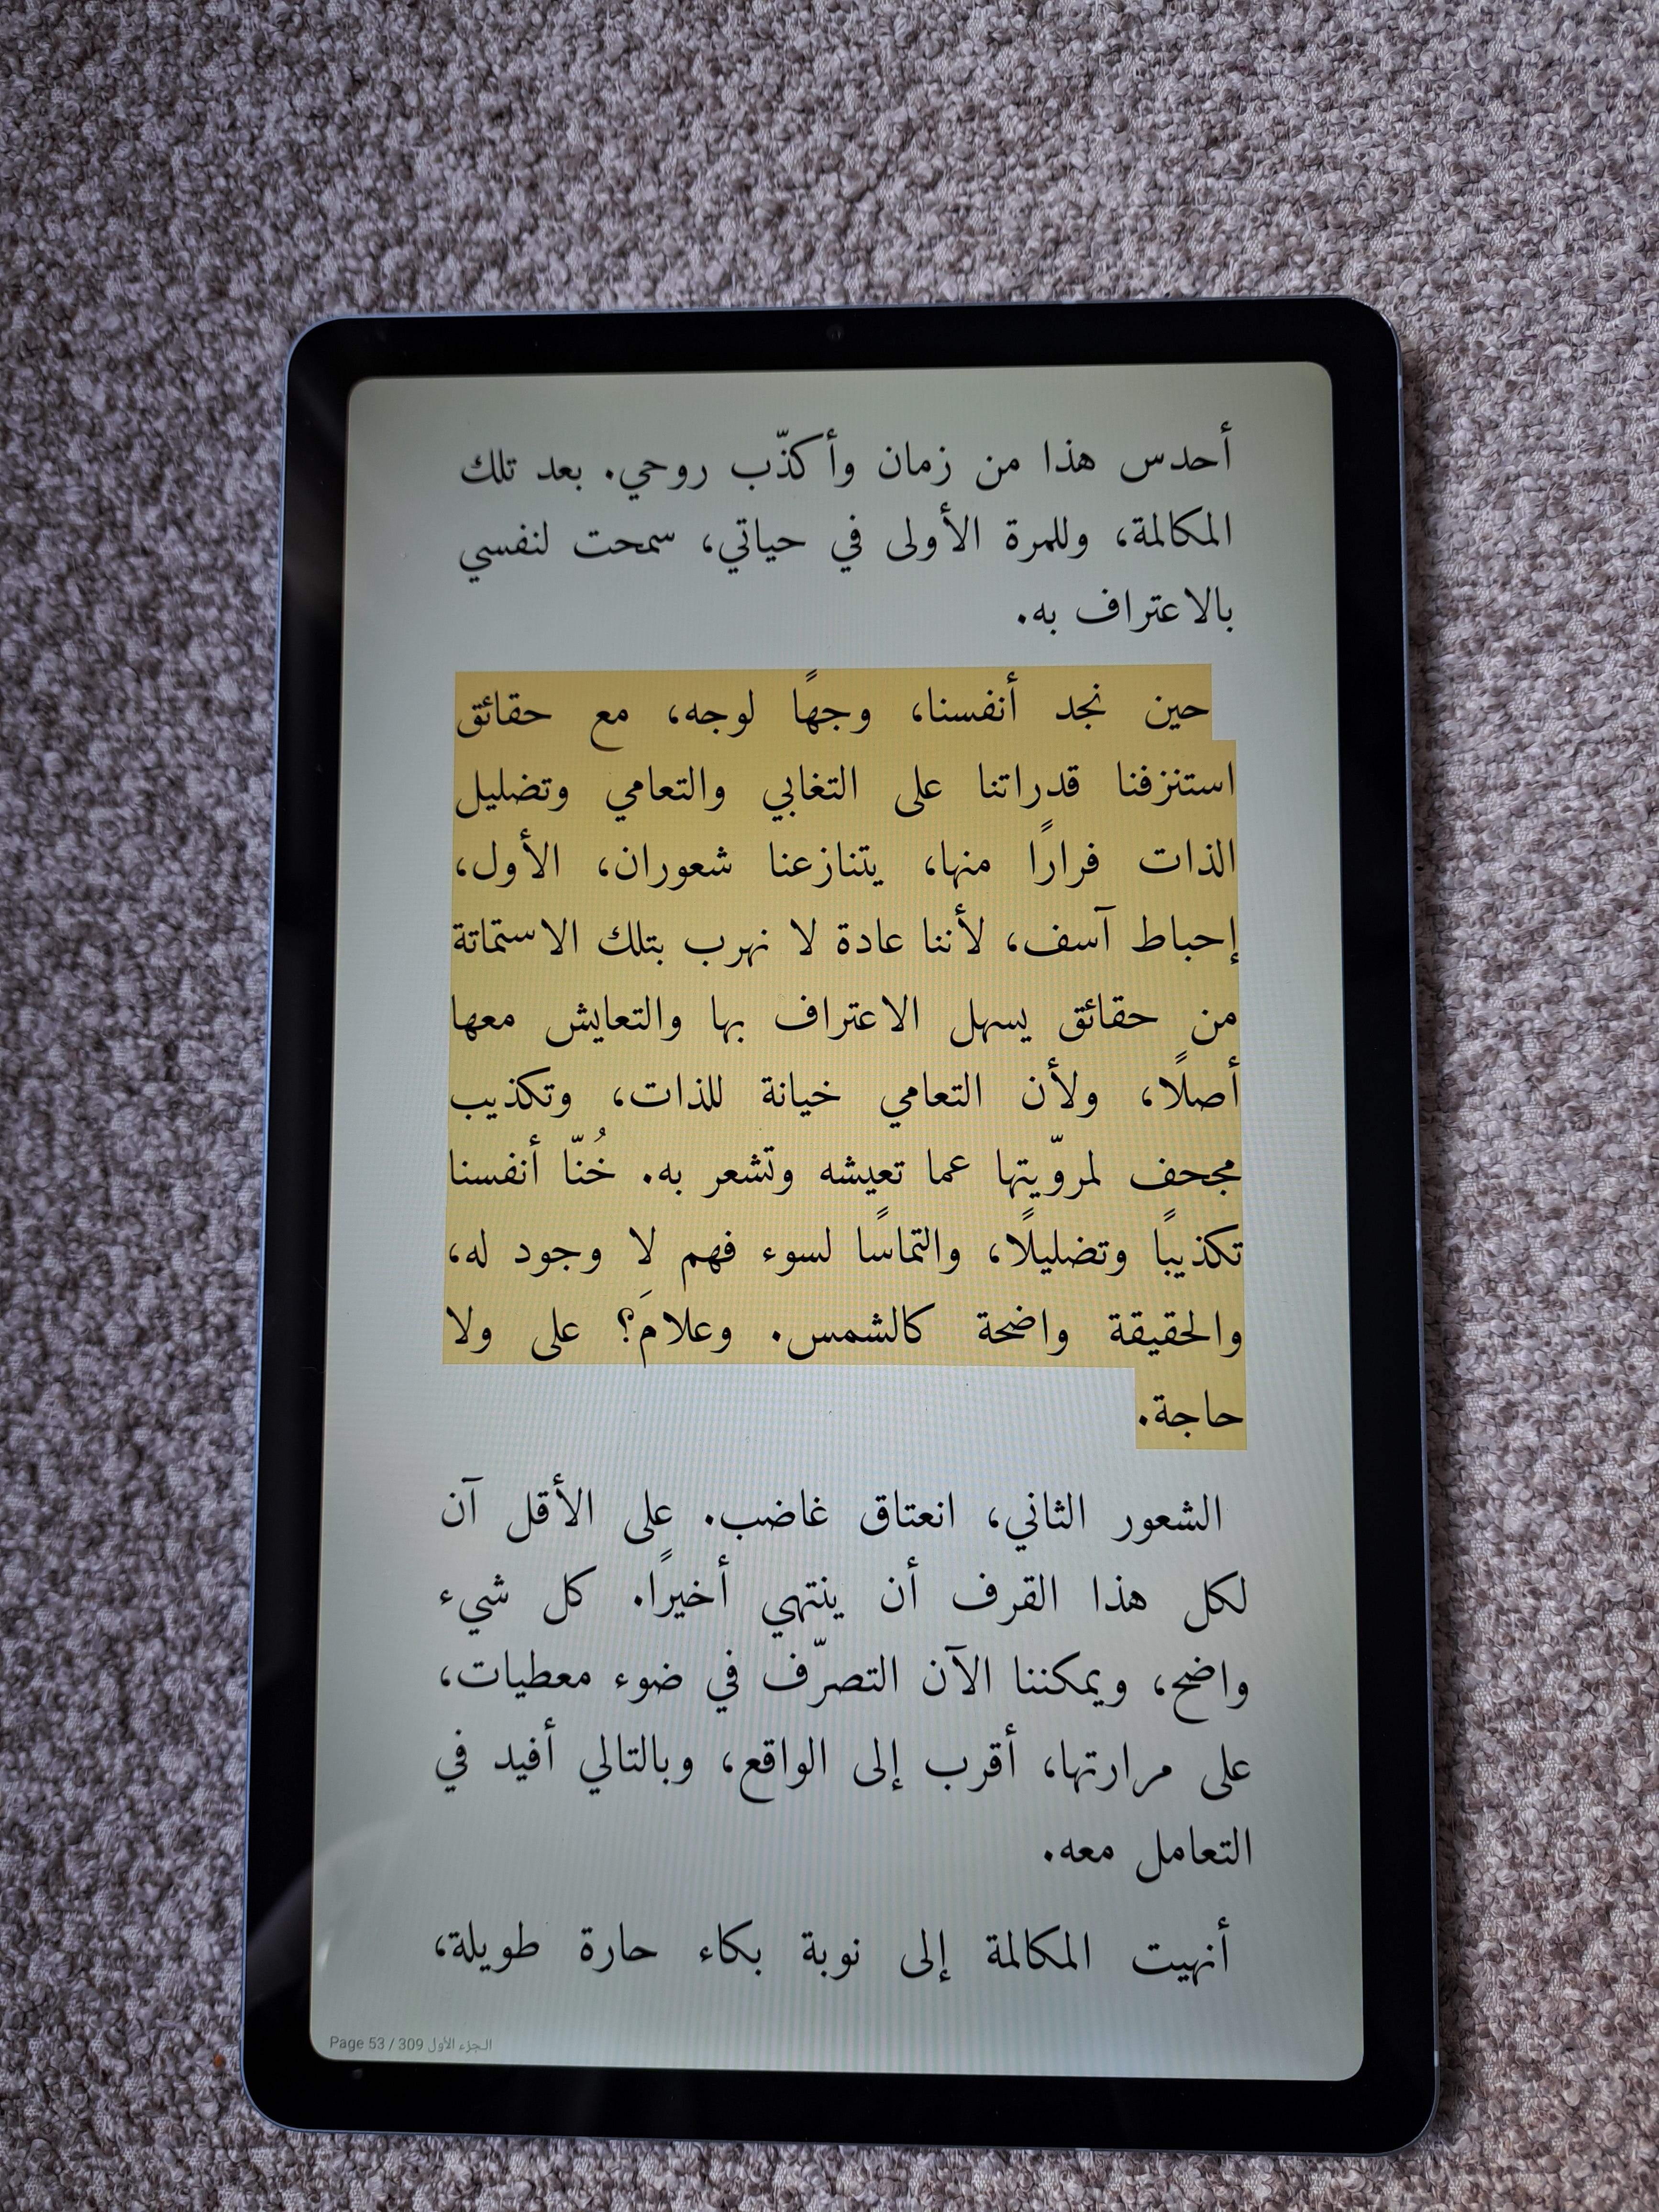 أحدس هذا من زمان وأكذّب روحي. بعد تلك
المكالمة، وللمرة الأولى في حياتي، سمحت لنفسي
بالاعتراف به.
حين نجد أنفسنا، وجهًا لوجه، مع حقائق
استنزفنا قدراتنا على التغابي والتعامي وتضليل
الذات فرارًا منها، يتنازعنا شعوران، الأول،
إحباط آسف، لأننا عادة لا نهرب بتلك الاستماتة
من حقائق يسهل الاعتراف بها والتعايش معها
أصلًا، ولأن التعامي خيانة للذات، وتكذيب
مجحف لمرويّتها عما تعيشه وتشعر به. خُنّا أنفسنا
تكذيبًا وتضليلًا، والتماسًا لسوء فهم لا وجود له،
والحقيقة واضحة كالشمس. وعلامَ؟ على ولا
حاجة.
الشعور الثاني، انعتاق غاضب. على الأقل آن
لكل هذا القرف أن ينتهي أخيرًا. كل شيء
واضح، ويمكننا الآن التصرّف في ضوء معطيات،
على مرارتها، أقرب إلى الواقع، وبالتالي أفيد في
التعامل معه.
أنهيت المكالمة إلى نوبة بكاء حارة طويلة،
Page 53 / 309 الجزء الأول